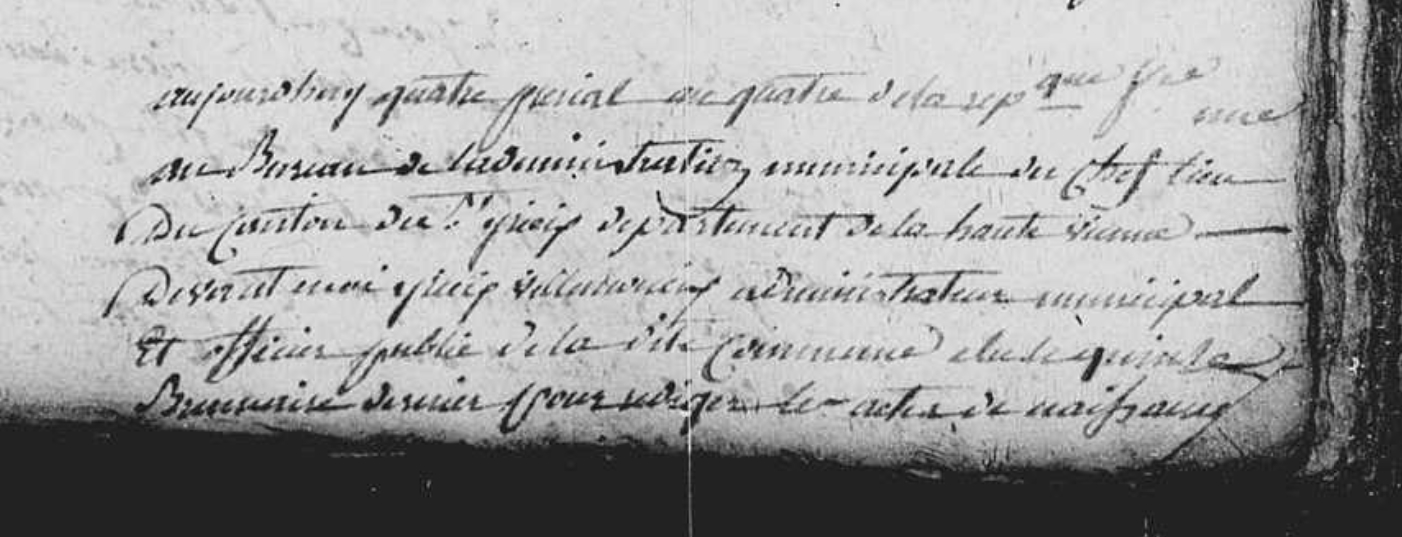 aujourdhuy quatre prerial an quatre de la rep que fse une
au Bureau de ladministration municipale du Chef lieu
Du Canton de St yrieix departement de la haute vienne
Devant moi yrieix administrateur municipal
Et officier public de la dite Commune elu le quinze
Brumaire dernier pour rediger les actes de naissance